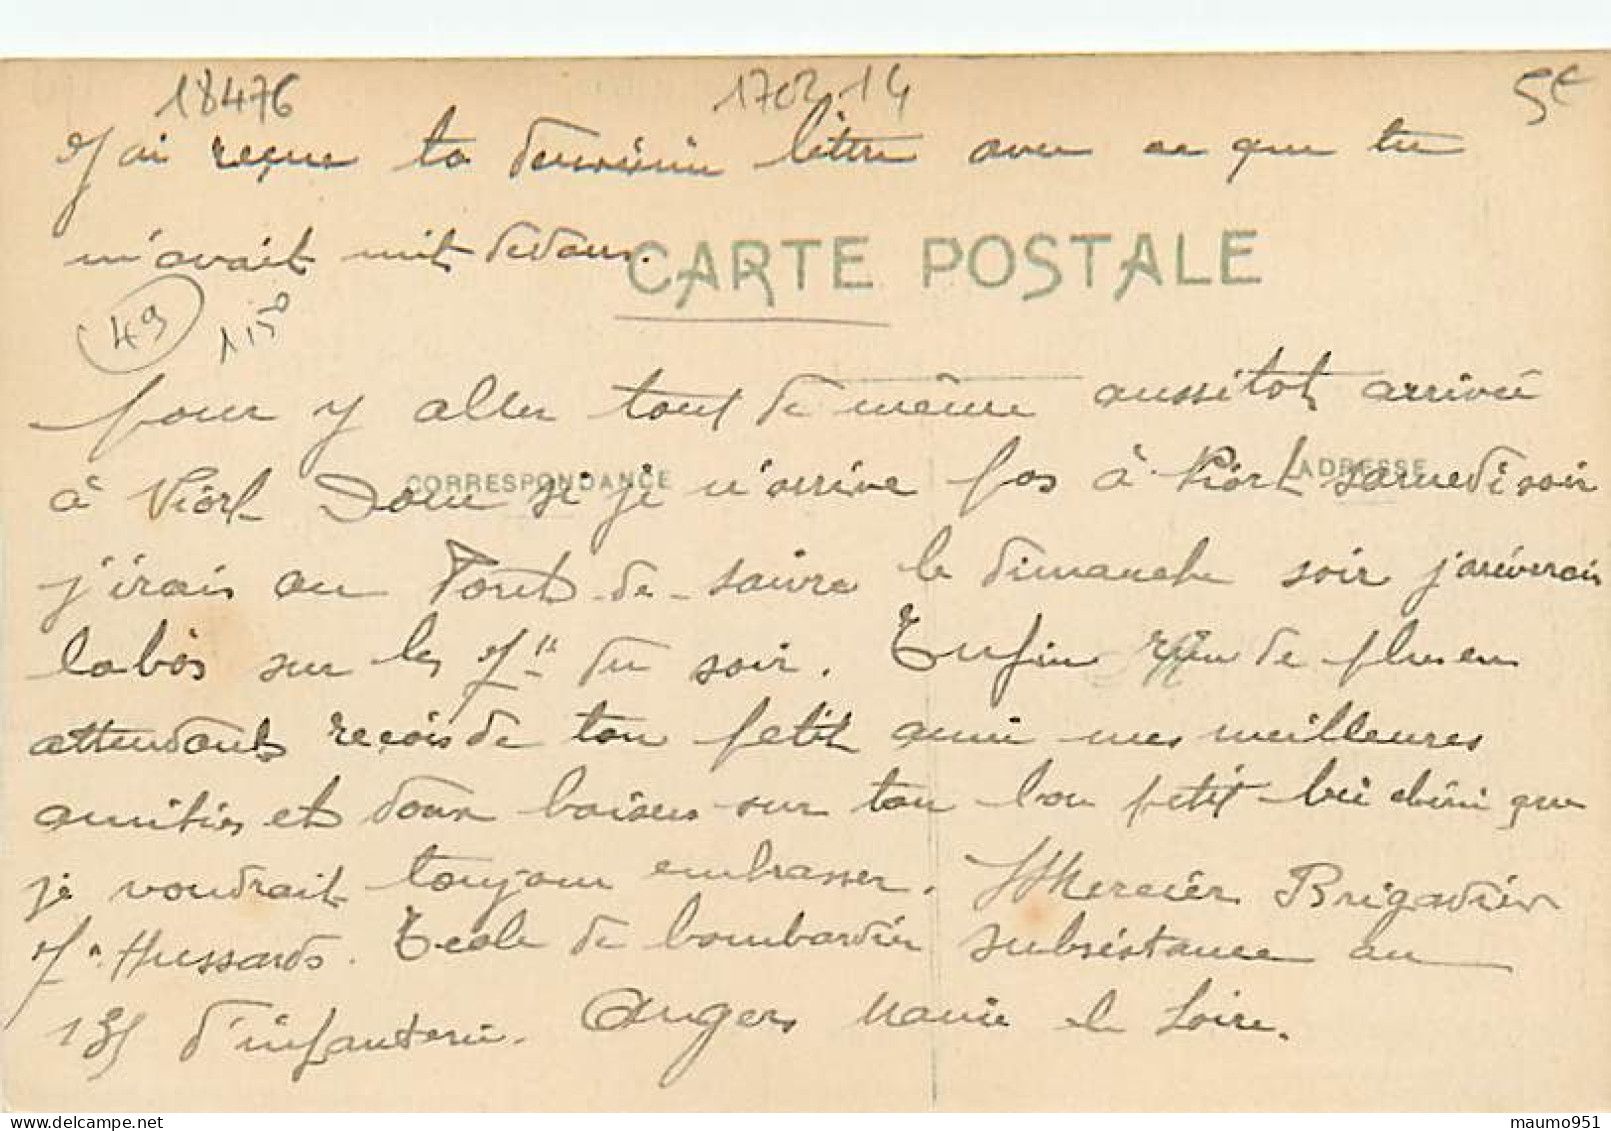 18476 1702 14 5€
J'ai reçue ta dernière lettre avec ce que tu
m'avait mit dedans.
CARTE POSTALE
49 1150
pour y aller tout de même aussitot arrivé
CORRESPONDANCE ADRESSE
à Niort Donc si je n'arrive pas à Niort samedi soir
j'irais au Pont-de-
le dimanche soir
labàs sur les 7h du soir. Enfin rien de plus en
attendant reçois de ton petit ami mes meilleures
amitiés et doux baisers sur ton bon petit bec chéri que
je voudrait toujour embrasser. Mercier Brigadier
7e Hussards. Ecole de bombardier subsistance au
135 d'infanterie. Angers Maine et Loire.
www.delcampe.net maumo951